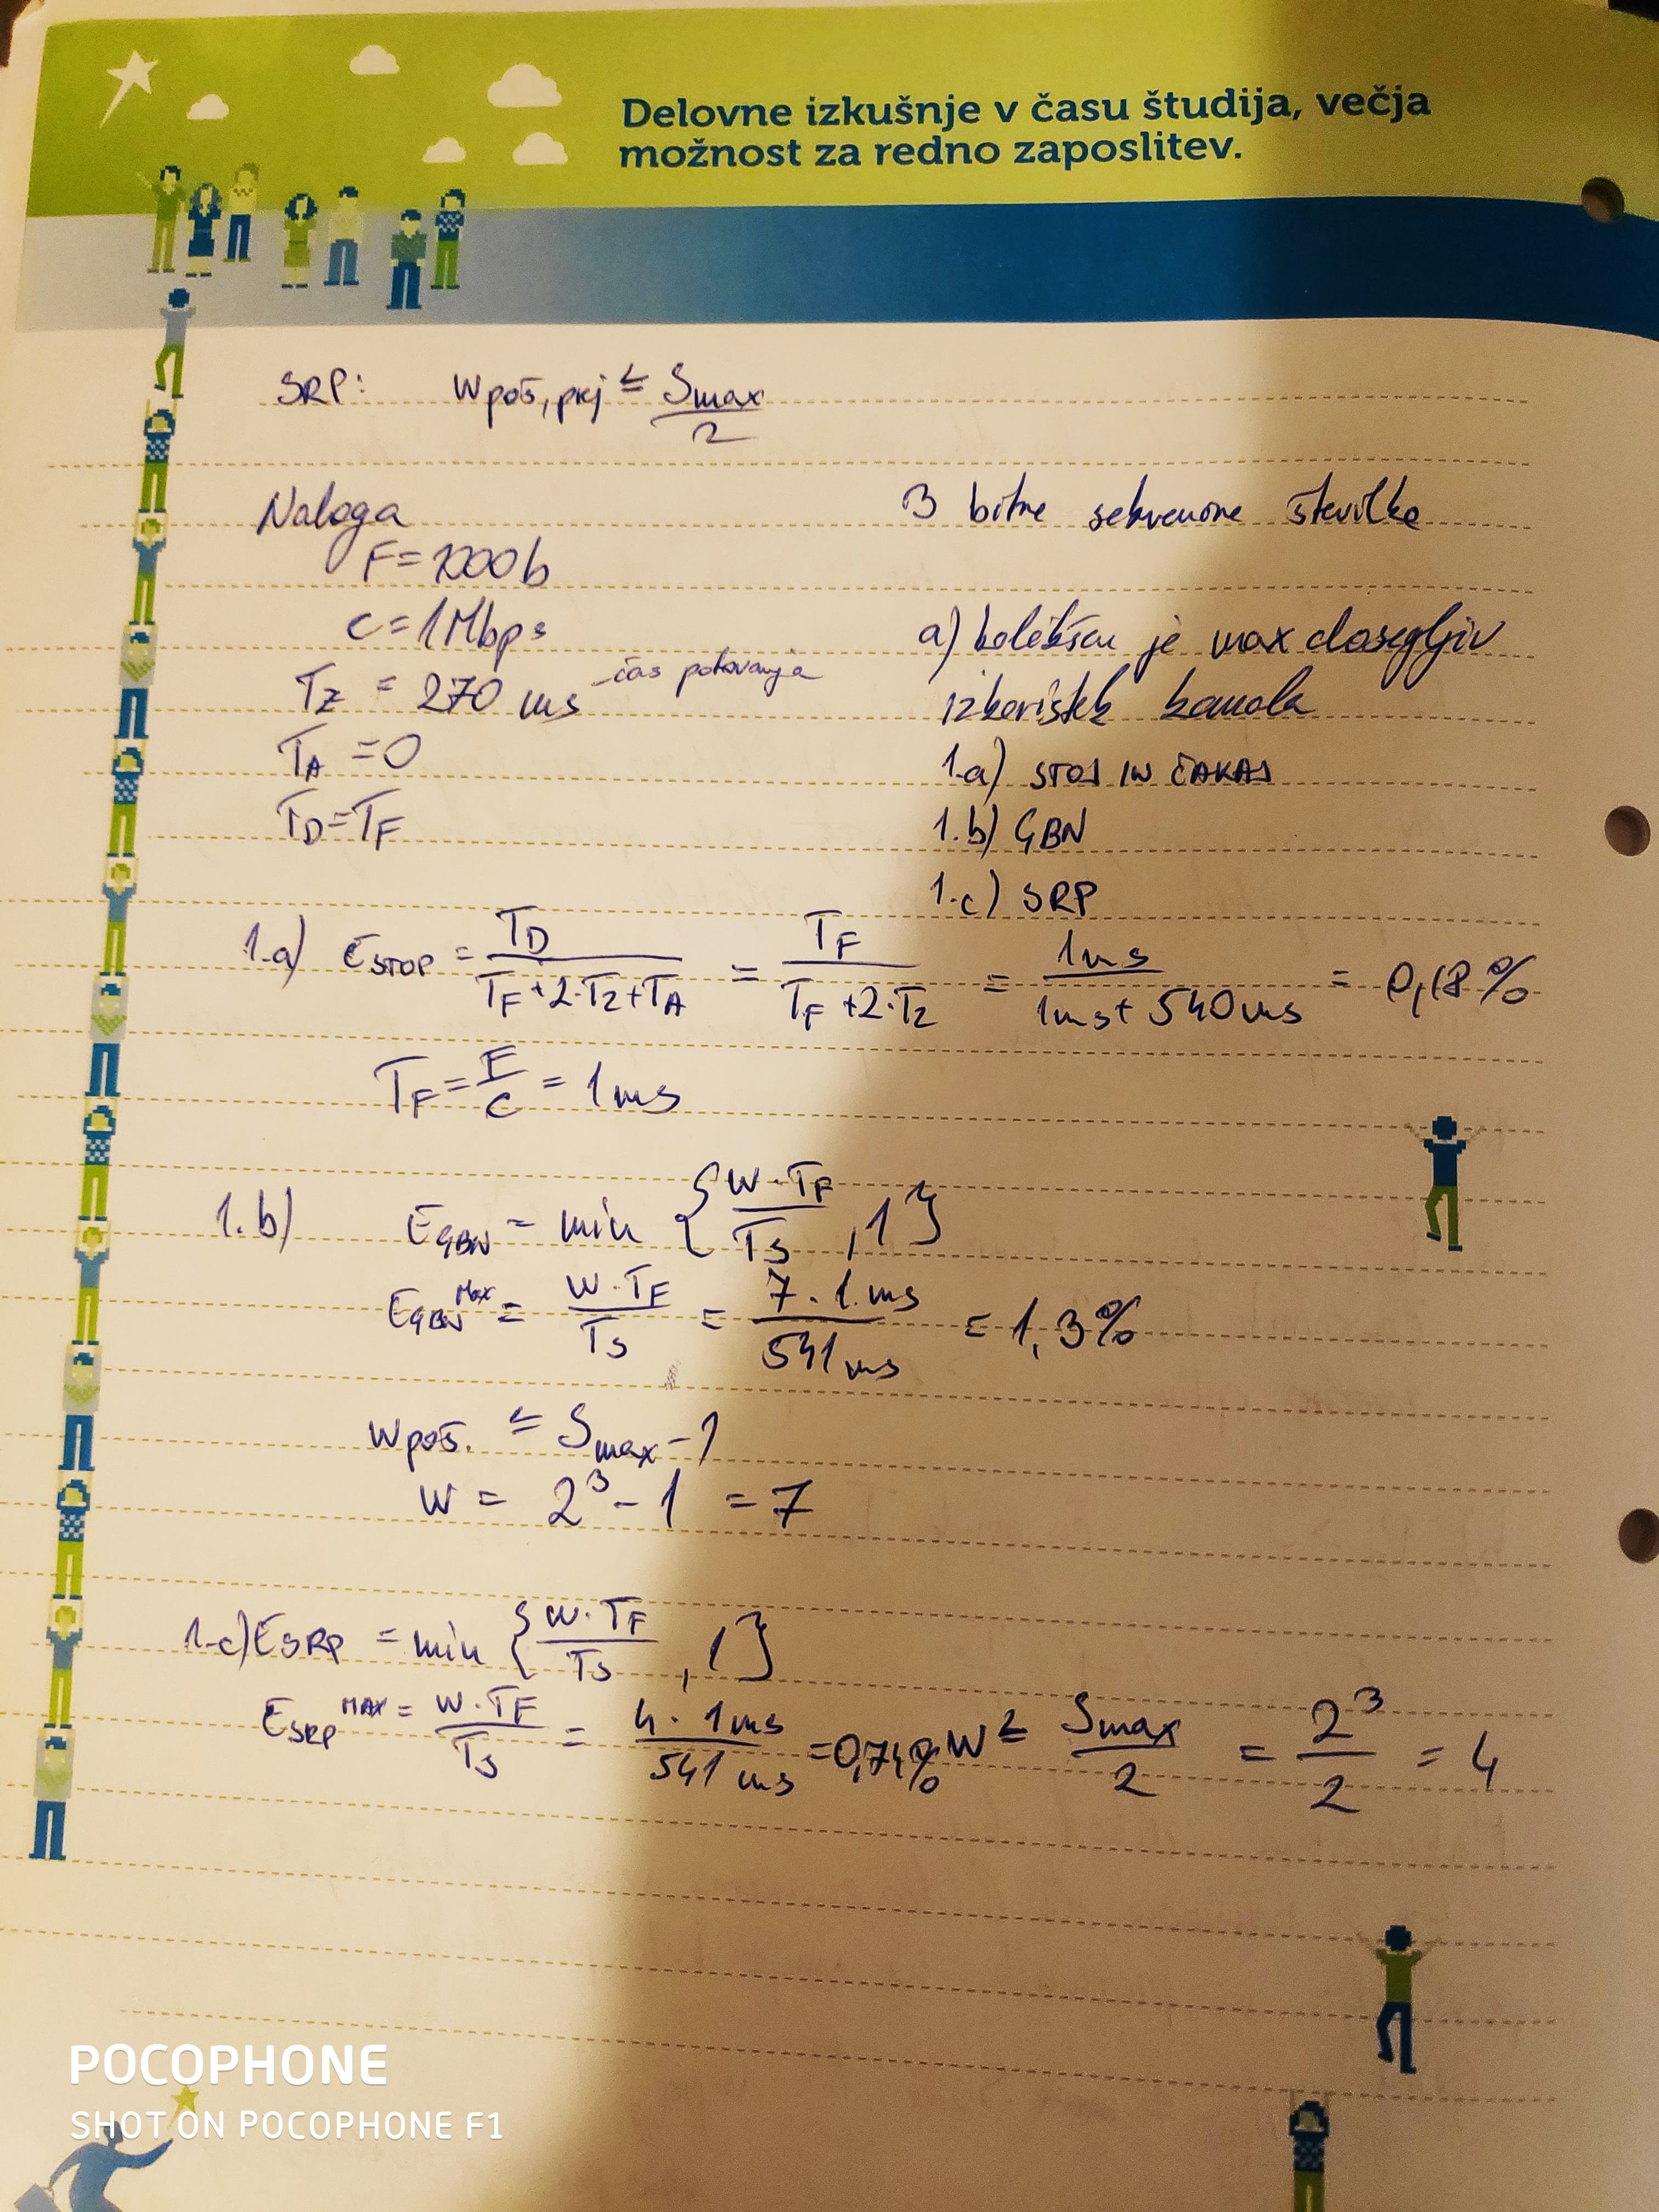 Delovne izkušnje v času študija, večja
možnost za redno zaposlitev.
SRP: Wpoš,prj ≤ Smax/2
Naloga
3 bitne sekvenčne številke
F = 1000b
C = 1Mbps
TZ = 270 ms - čas potovanja
TA = 0
TD = TF
a) kolikšen je max dosegljiv
izkoristek kanala
1.a) STOJ IN ČAKAJ
1.b) GBN
1.c) SRP
1.a) ESTOP = TD/(TF+2·TZ+TA) = TF/(TF+2·TZ) = 1ms/(1ms+540ms) = 0,18%
TF = F/C = 1ms
1.b) EGBN = min {W·TF/TS, 1}
EGBN^MAX = W·TF/TS = 7·1ms/541ms = 1,3%
Wpoš. ≤ Smax-1
W = 2^3 - 1 = 7
1.c) ESRP = min {W·TF/TS, 1}
ESRP^MAX = W·TF/TS = 4·1ms/541ms = 0,74% W ≤ Smax/2 = 2^3/2 = 4
POCOPHONE
SHOT ON POCOPHONE F1